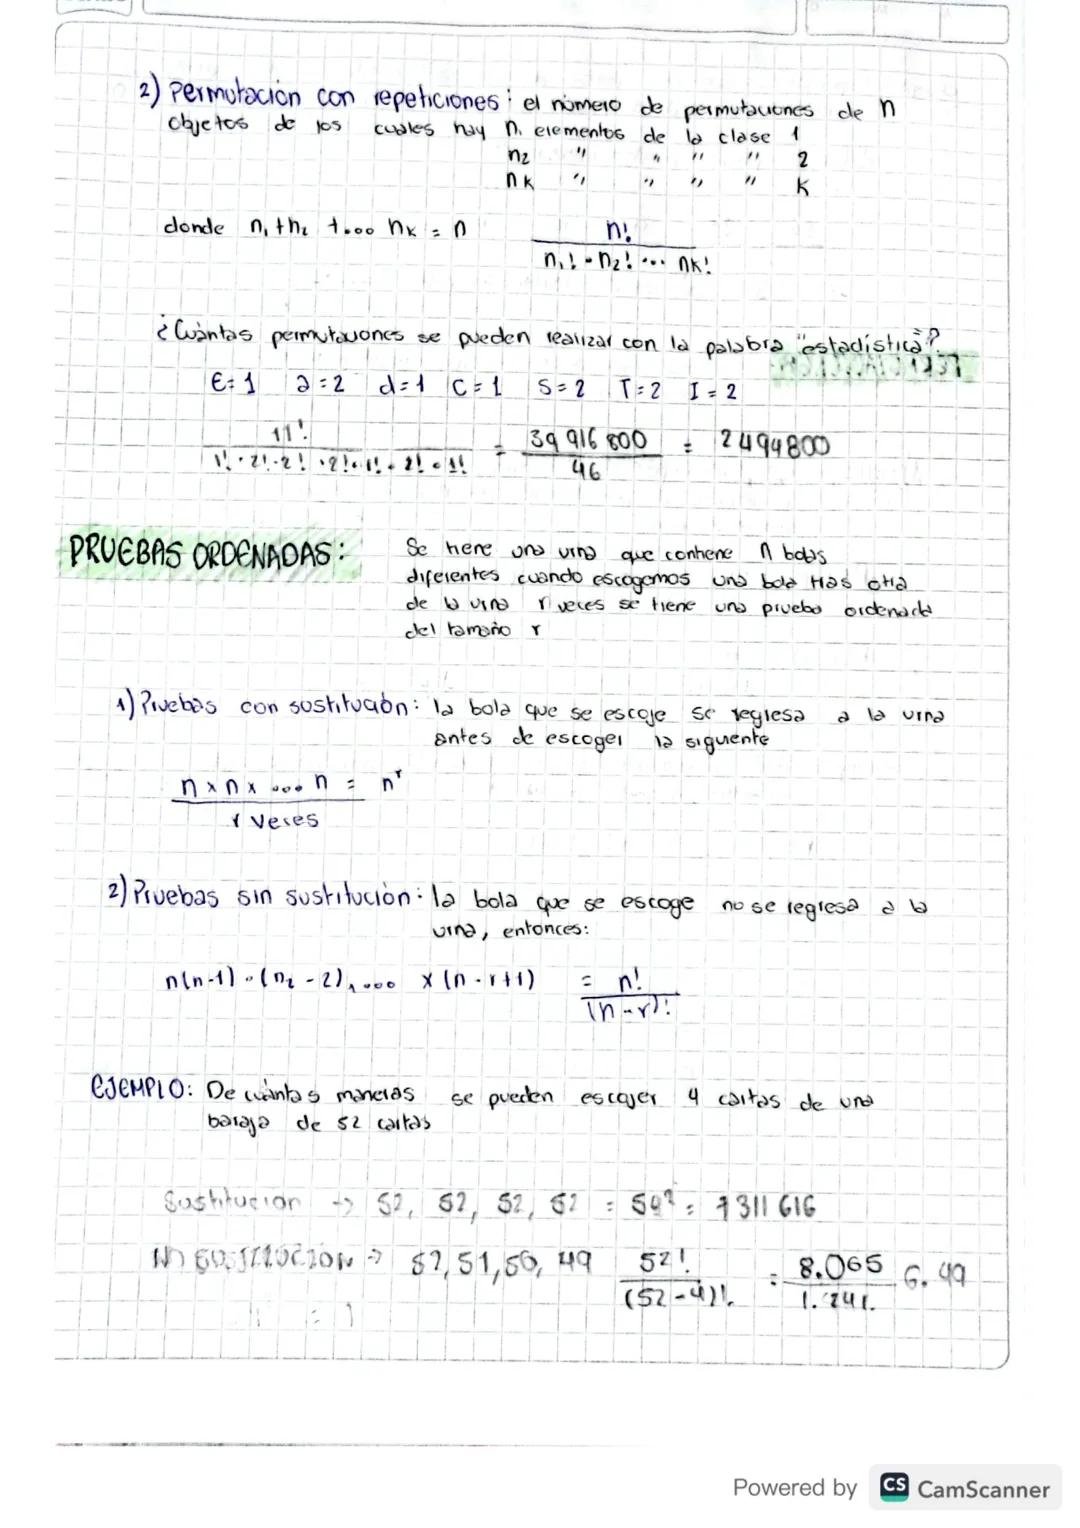 2) Permutación con repeticiones: el número de permutaciones de n
objetos de los cuales hay n₁ elementos de la clase 1
n₂ " " " " 2
nk " " " " K
donde n₁+n₂ +... nk = n
n!
n₁! · n₂! ... nk!
¿Cuántas permutaciones se pueden realizar con la palabra "estadística"?
E=1 a=2 d=1 C=1 S=2 T=2 I=2
11!
1!·2!·2!·2!·1!·2!·1! = 39 916 800 = 2494800
46
PRUEBAS ORDENADAS:
Se tiene una urna que contiene n bolas
diferentes cuando escogemos una bola tras otra
de la urna r veces se tiene una prueba ordenada
del tamaño r
1) Pruebas con sustitución: la bola que se escoje se regresa a la urna
antes de escoger la siguiente
n x n x ... n = nʳ
r veces
2) Pruebas sin sustitución: la bola que se escoge no se regresa a la
urna, entonces:
n(n-1)·(n₂-2), ... x (n-r+1) = n!
(n-r)!
EJEMPLO: De cuántas maneras se pueden escojer 4 cartas de una
baraja de 52 cartas
Sustitucion → 52, 52, 52, 52 = = 7311 616
NO SUSTITUCION → 52, 51, 50, 49 52! = 8.065 6.49
(52-4)! 1.241.
Powered by CS CamScanner